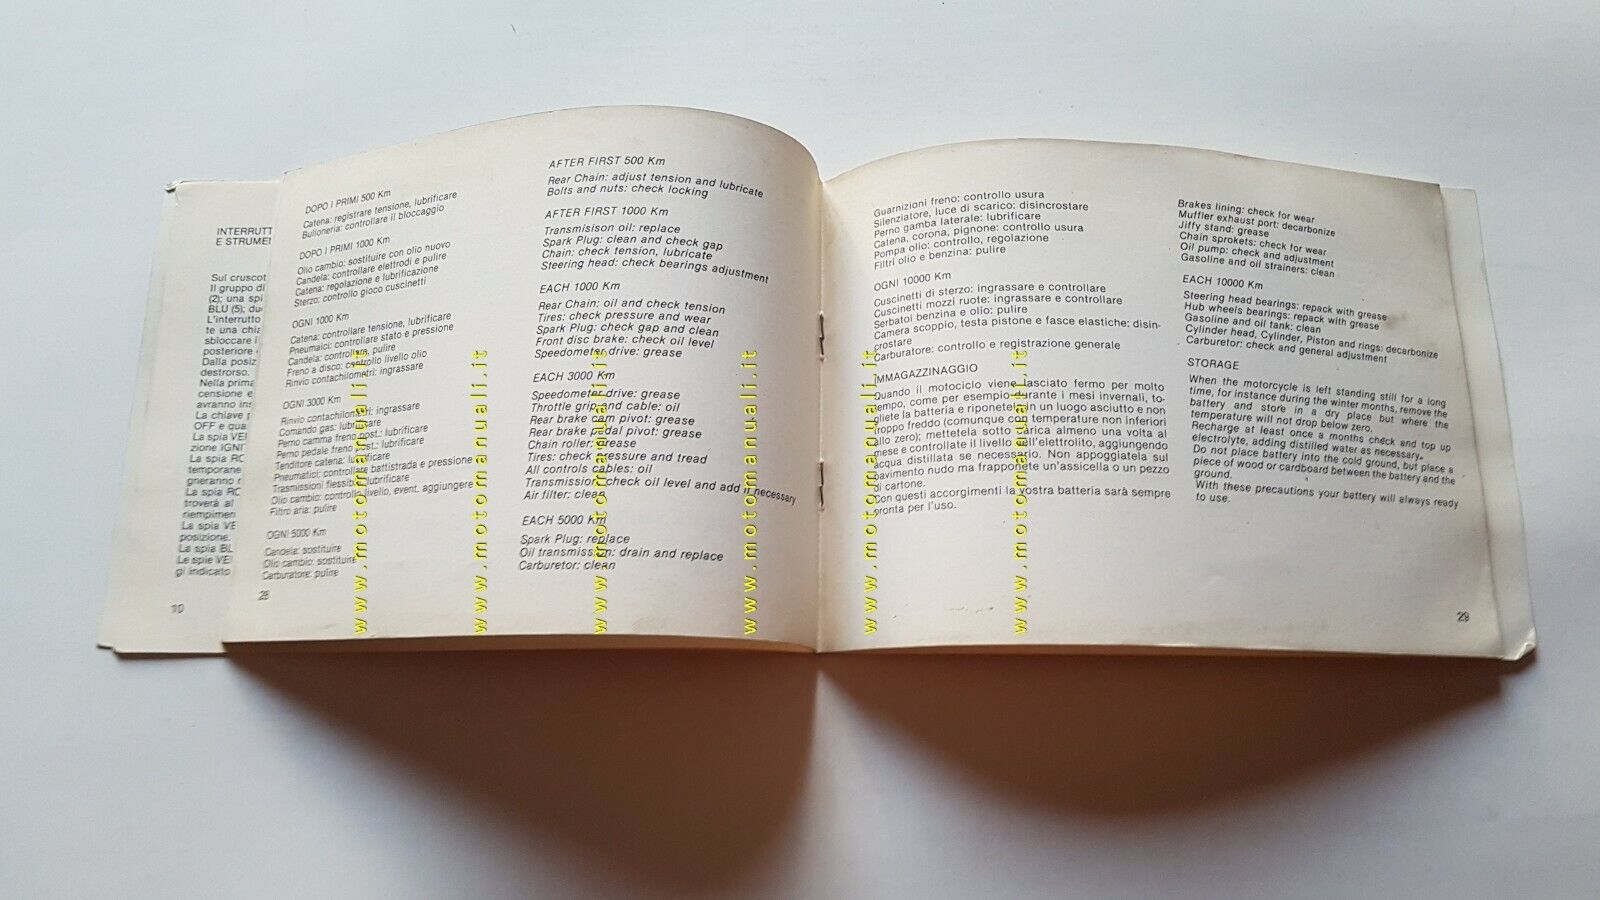 INTERRUTT
E STRUMEN
Sul cruscot
Il gruppo di
(2); una spi
BLU (5); du
L'interrutto
te una chia
sbloccare i
posteriore
Dalla posiz
destrorso.
Nella prima
censione e
avranno in
La chiave p
OFF e qua
La spia VE
zione IGNI
La spia RO
temporane
gneranno r
La spia RO
troverà al
riempimen
La spia VE
posizione.
La spia BL
Le spie VE
gl indicato
10
DOPO I PRIMI 500 Km
Catena: registrare tensione, lubrificare
Bulloneria: controllare il bloccaggio
DOPO I PRIMI 1000 Km
Olio cambio: sostituire con olio nuovo
Candela: controllare elettrodi e pulire
Catena: regolazione e lubrificazione
Sterzo: controllo gioco cuscinetti
OGNI 1000 Km
Catena: controllare tensione, lubrificare
Pneumaici: controllare stato e pressione
Candela: controllare, pulire
Freno a disco: controllo livello olio
Rinvio contachilometri: ingrassare
OGNI 3000 Km
Rinvio contachilometri: ingrassare
Comando gas: lubrificare
Perno camma freno post.: lubrificare
Perno pedale freno post.: lubrificare
Tenditore catena: lubrificare
Pneumatici: controllare battistrada e pressione
Trasmissioni flessibili: lubrificare
Olio cambio: controllo livello, event. aggiungere
Filtro aria: pulire
OGNI 5000 Km
Candela: sostituire
Olio cambio: sostituire
Carburatore: pulire
28
AFTER FIRST 500 Km
Rear Chain: adjust tension and lubricate
Bolts and nuts: check locking
AFTER FIRST 1000 Km
Transmisison oil: replace
Spark Plug: clean and check gap
Chain: check tension, lubricate
Steering head: check bearings adjustment
EACH 1000 Km
Rear Chain: oil and check tension
Tires: check pressure and wear
Spark Plug: check gap and clean
Front disc brake: check oil level
Speedometer drive: grease
EACH 3000 Km
Speedometer drive: grease
Throttle grip and cable: oil
Rear brake cam pivot: grease
Rear brake pedal pivot: grease
Chain roller: grease
Tires: check pressure and tread
All controls cables: oil
Transmission: check oil level and add if necessary
Air filter: clean
EACH 5000 Km
Spark Plug: replace
Oil transmission: drain and replace
Carburetor: clean
Guarnizioni freno: controllo usura
Silenziatore, luce di scarico: disincrostare
Perno gamba laterale: lubrificare
Catena, corona, pignone: controllo usura
Pompa olio: controllo, regolazione
Filtri olio e benzina: pulire
OGNI 10000 Km
Cuscinetti di sterzo: ingrassare e controllare
Cuscinetti mozzi ruote: ingrassare e controllare
Serbatoi benzina e olio: pulire
Camera scoppio, testa pistone e fasce elastiche: disin-
crostare
Carburatore: controllo e registrazione generale
IMMAGAZZINAGGIO
Quando il motociclo viene lasciato fermo per molto
tempo, come per esempio durante i mesi invernali, to-
gliete la batteria e riponetela in un luogo asciutto e non
troppo freddo (comunque con temperature non inferiori
allo zero); mettetela sotto carica almeno una volta al
mese e controllate il livello dell'elettrolito, aggiungendo
acqua distillata se necessario. Non appoggiatela sul
pavimento nudo ma frapponete un'assicella o un pezzo
di cartone.
Con questi accorgimenti la vostra batteria sarà sempre
pronta per l'uso.
Brakes lining: check for wear
Muffler exhaust port: decarbonize
Jiffy stand: grease
Chain sprokets: check for wear
Oil pump: check and adjustment
Gasoline and oil strainers: clean
EACH 10000 Km
Steering head bearings: repack with grease
Hub wheels bearings: repack with grease
Gasoline and oil tank: clean
Cylinder head, Cylinder, Piston and rings: decarbonize
Carburetor: check and general adjustment
STORAGE
When the motorcycle is left standing still for a long
time, for instance during the winter months, remove the
battery and store in a dry place but where the
temperature will not drop below zero.
Recharge at least once a months check and top up
electrolyte, adding distilled water as necessary.
Do not place battery into the cold ground, but place a
piece of wood or cardboard between the battery and the
ground.
With these precautions your battery will always ready
to use.
29
www.motomanuali.it
www.motomanuali.it
www.motomanuali.it
www.motomanuali.it
www.motomanuali.it
www.motomanuali.it